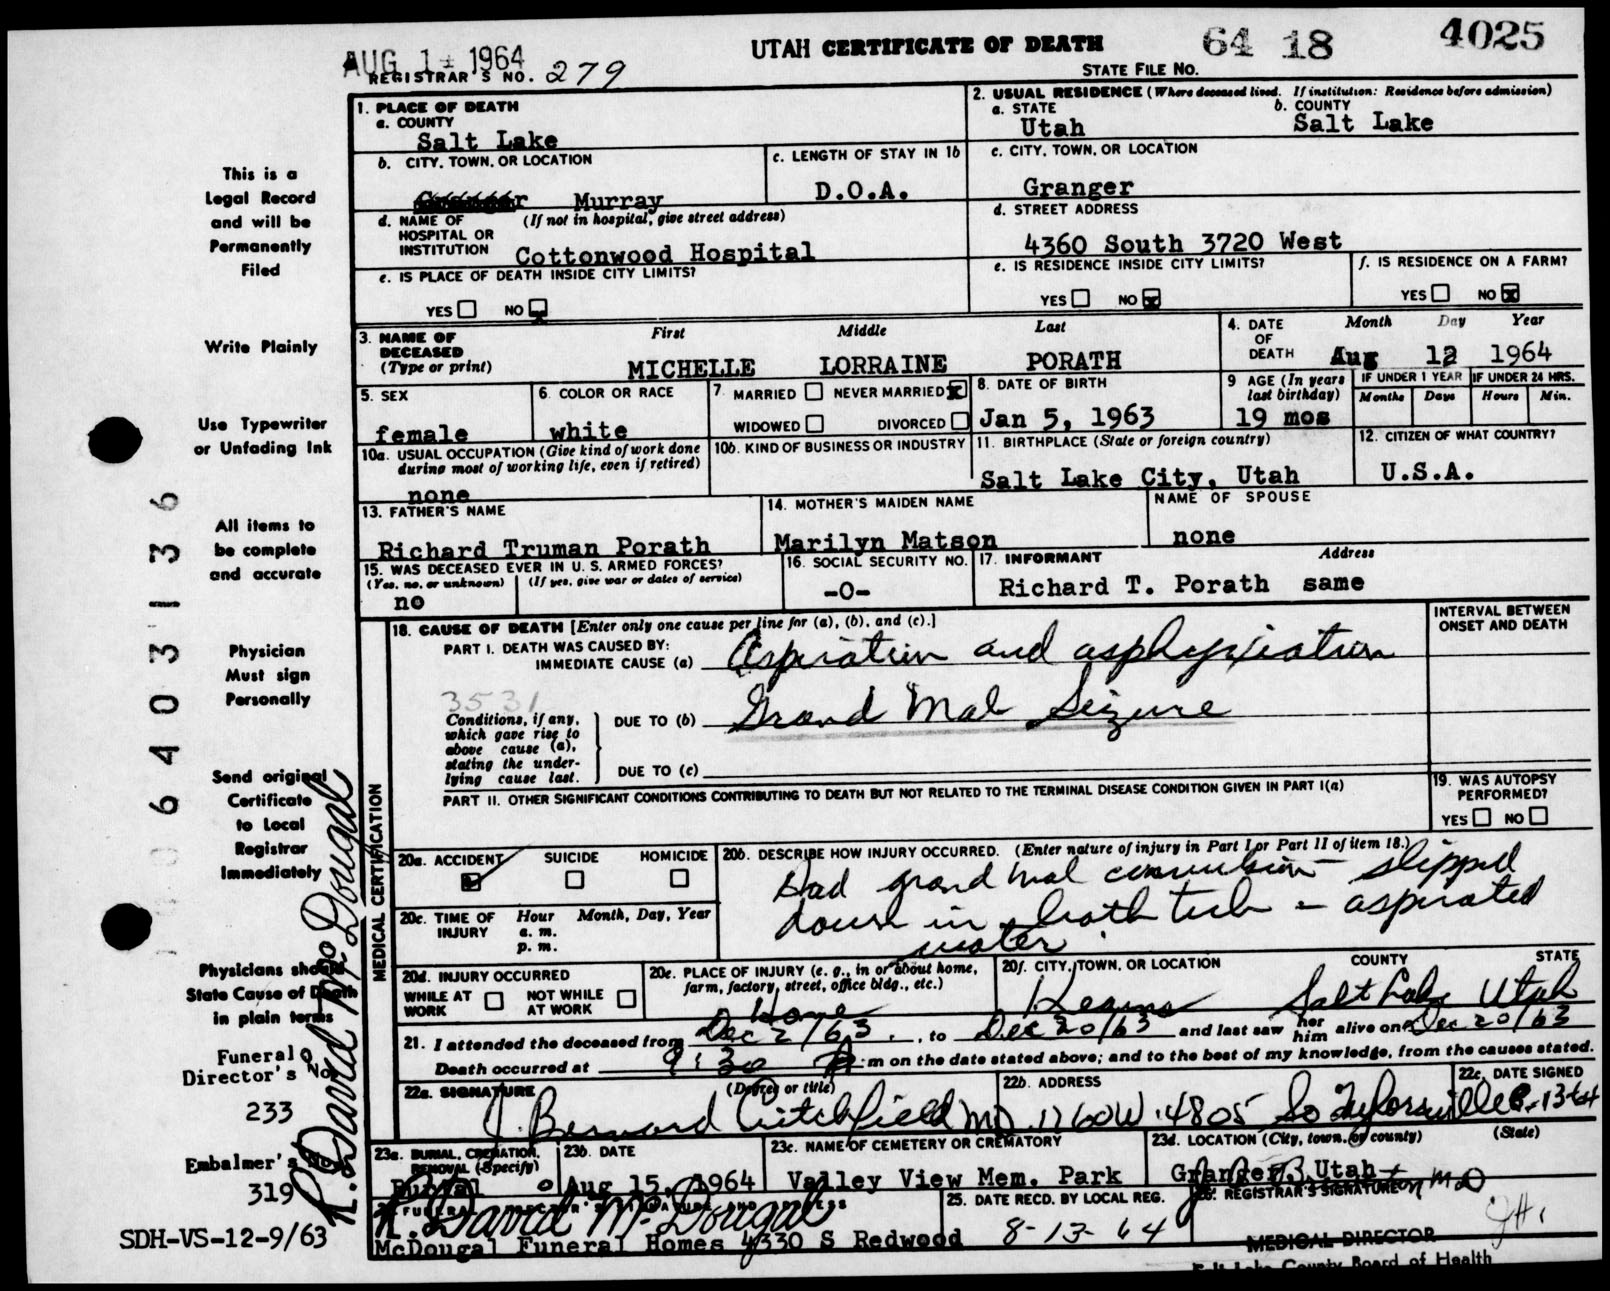 AUG 14 1964
REGISTRAR'S NO. 279
UTAH CERTIFICATE OF DEATH
64 18 4025
STATE FILE NO.
This is a
Legal Record
and will be
Permanently
Filed
Write Plainly
Use Typewriter
or Unfading Ink
All items to
be complete
and accurate
Physician
Must sign
Personally
Send original
Certificate
to Local
Registrar
Immediately
Physicians should
State Cause of Death
in plain terms
Funeral
Director's No.
233
Embalmer's
319
SDH-VS-12-9/63
6403136
R. David McDougal
1. PLACE OF DEATH
a. COUNTY
Salt Lake
b. CITY, TOWN, OR LOCATION
Granger Murray
c. LENGTH OF STAY IN 1b
D.O.A.
d. NAME OF HOSPITAL OR INSTITUTION (If not in hospital, give street address)
Cottonwood Hospital
e. IS PLACE OF DEATH INSIDE CITY LIMITS?
YES NO
2. USUAL RESIDENCE (Where deceased lived. If institution: Residence before admission)
a. STATE
Utah
b. COUNTY
Salt Lake
c. CITY, TOWN, OR LOCATION
Granger
d. STREET ADDRESS
4360 South 3720 West
e. IS RESIDENCE INSIDE CITY LIMITS?
YES NO x
f. IS RESIDENCE ON A FARM?
YES NO x
3. NAME OF DECEASED (Type or print)
First Middle Last
MICHELLE LORRAINE PORATH
4. DATE OF DEATH
Month Day Year
Aug 12 1964
5. SEX
female
6. COLOR OR RACE
white
7. MARRIED NEVER MARRIED x
WIDOWED DIVORCED
8. DATE OF BIRTH
Jan 5, 1963
9 AGE (In years last birthday)
19 mos
IF UNDER 1 YEAR
Months Days
IF UNDER 24 HRS.
Hours Min.
10a. USUAL OCCUPATION (Give kind of work done during most of working life, even if retired)
none
10b. KIND OF BUSINESS OR INDUSTRY
11. BIRTHPLACE (State or foreign country)
Salt Lake City, Utah
12. CITIZEN OF WHAT COUNTRY?
U.S.A.
13. FATHER'S NAME
Richard Truman Porath
14. MOTHER'S MAIDEN NAME
Marilyn Matson
NAME OF SPOUSE
none
15. WAS DECEASED EVER IN U. S. ARMED FORCES?
(Yes, no, or unknown) (If yes, give war or dates of service)
no
16. SOCIAL SECURITY NO.
-0-
17. INFORMANT Address
Richard T. Porath same
MEDICAL CERTIFICATION
18. CAUSE OF DEATH [Enter only one cause per line for (a), (b), and (c).]
INTERVAL BETWEEN ONSET AND DEATH
PART I. DEATH WAS CAUSED BY:
IMMEDIATE CAUSE (a) Aspiration and asphyxiation
3531
Conditions, if any, which gave rise to above cause (a), stating the underlying cause last.
DUE TO (b) Grand Mal Seizure
DUE TO (c)
PART II. OTHER SIGNIFICANT CONDITIONS CONTRIBUTING TO DEATH BUT NOT RELATED TO THE TERMINAL DISEASE CONDITION GIVEN IN PART I(a)
19. WAS AUTOPSY PERFORMED?
YES NO
20a. ACCIDENT SUICIDE HOMICIDE
20b. DESCRIBE HOW INJURY OCCURRED. (Enter nature of injury in Part I or Part II of item 18.)
Had grand mal convulsion - slipped
down in bath tub - aspirated
water
20c. TIME OF INJURY
Hour Month, Day, Year
a. m.
p. m.
20d. INJURY OCCURRED
WHILE AT WORK NOT WHILE AT WORK
20e. PLACE OF INJURY (e. g., in or about home, farm, factory, street, office bldg., etc.)
Home
20f. CITY, TOWN, OR LOCATION COUNTY STATE
Kearns Salt Lake Utah
21. I attended the deceased from Dec 2/63, to Dec 20/63 and last saw her him alive on Dec 20/63
Death occurred at 9:30 P m on the date stated above; and to the best of my knowledge, from the causes stated.
22a. SIGNATURE (Degree or title)
J. Bernard Critchfield MD
22b. ADDRESS
1760 W. 4805 So Taylorsville
22c. DATE SIGNED
8-13-64
23a. BURIAL, CREMATION, REMOVAL (Specify)
Burial
23b. DATE
Aug 15, 1964
23c. NAME OF CEMETERY OR CREMATORY
Valley View Mem. Park
23d. LOCATION (City, town, or county) (State)
Granger, Utah
R. David McDougal
McDougal Funeral Homes 4330 S Redwood
25. DATE RECD. BY LOCAL REG.
8-13-64
26. REGISTRAR'S SIGNATURE
MEDICAL DIRECTOR
Salt Lake County Board of Health